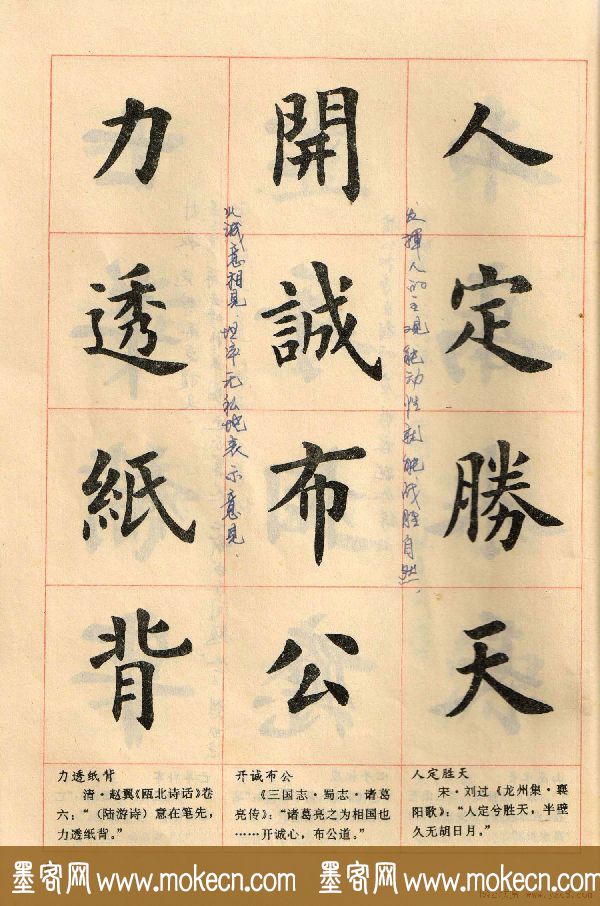 人定勝天
发挥人的主观能动性就能战胜自然.
開誠布公
以诚意相见.坦率无私地表示意见.
力透紙背
力透纸背
清·赵翼《瓯北诗话》卷
六：“(陆游诗)意在笔先，
力透纸背。”
开诚布公
《三国志·蜀志·诸葛
亮传》：“诸葛亮之为相国也
……开诚心，布公道。”
人定胜天
宋·刘过《龙州集·襄
阳歌》：“人定兮胜天，半壁
久无胡日月。”
墨客网 www.mokecn.com 墨客网 www.mokecn.com